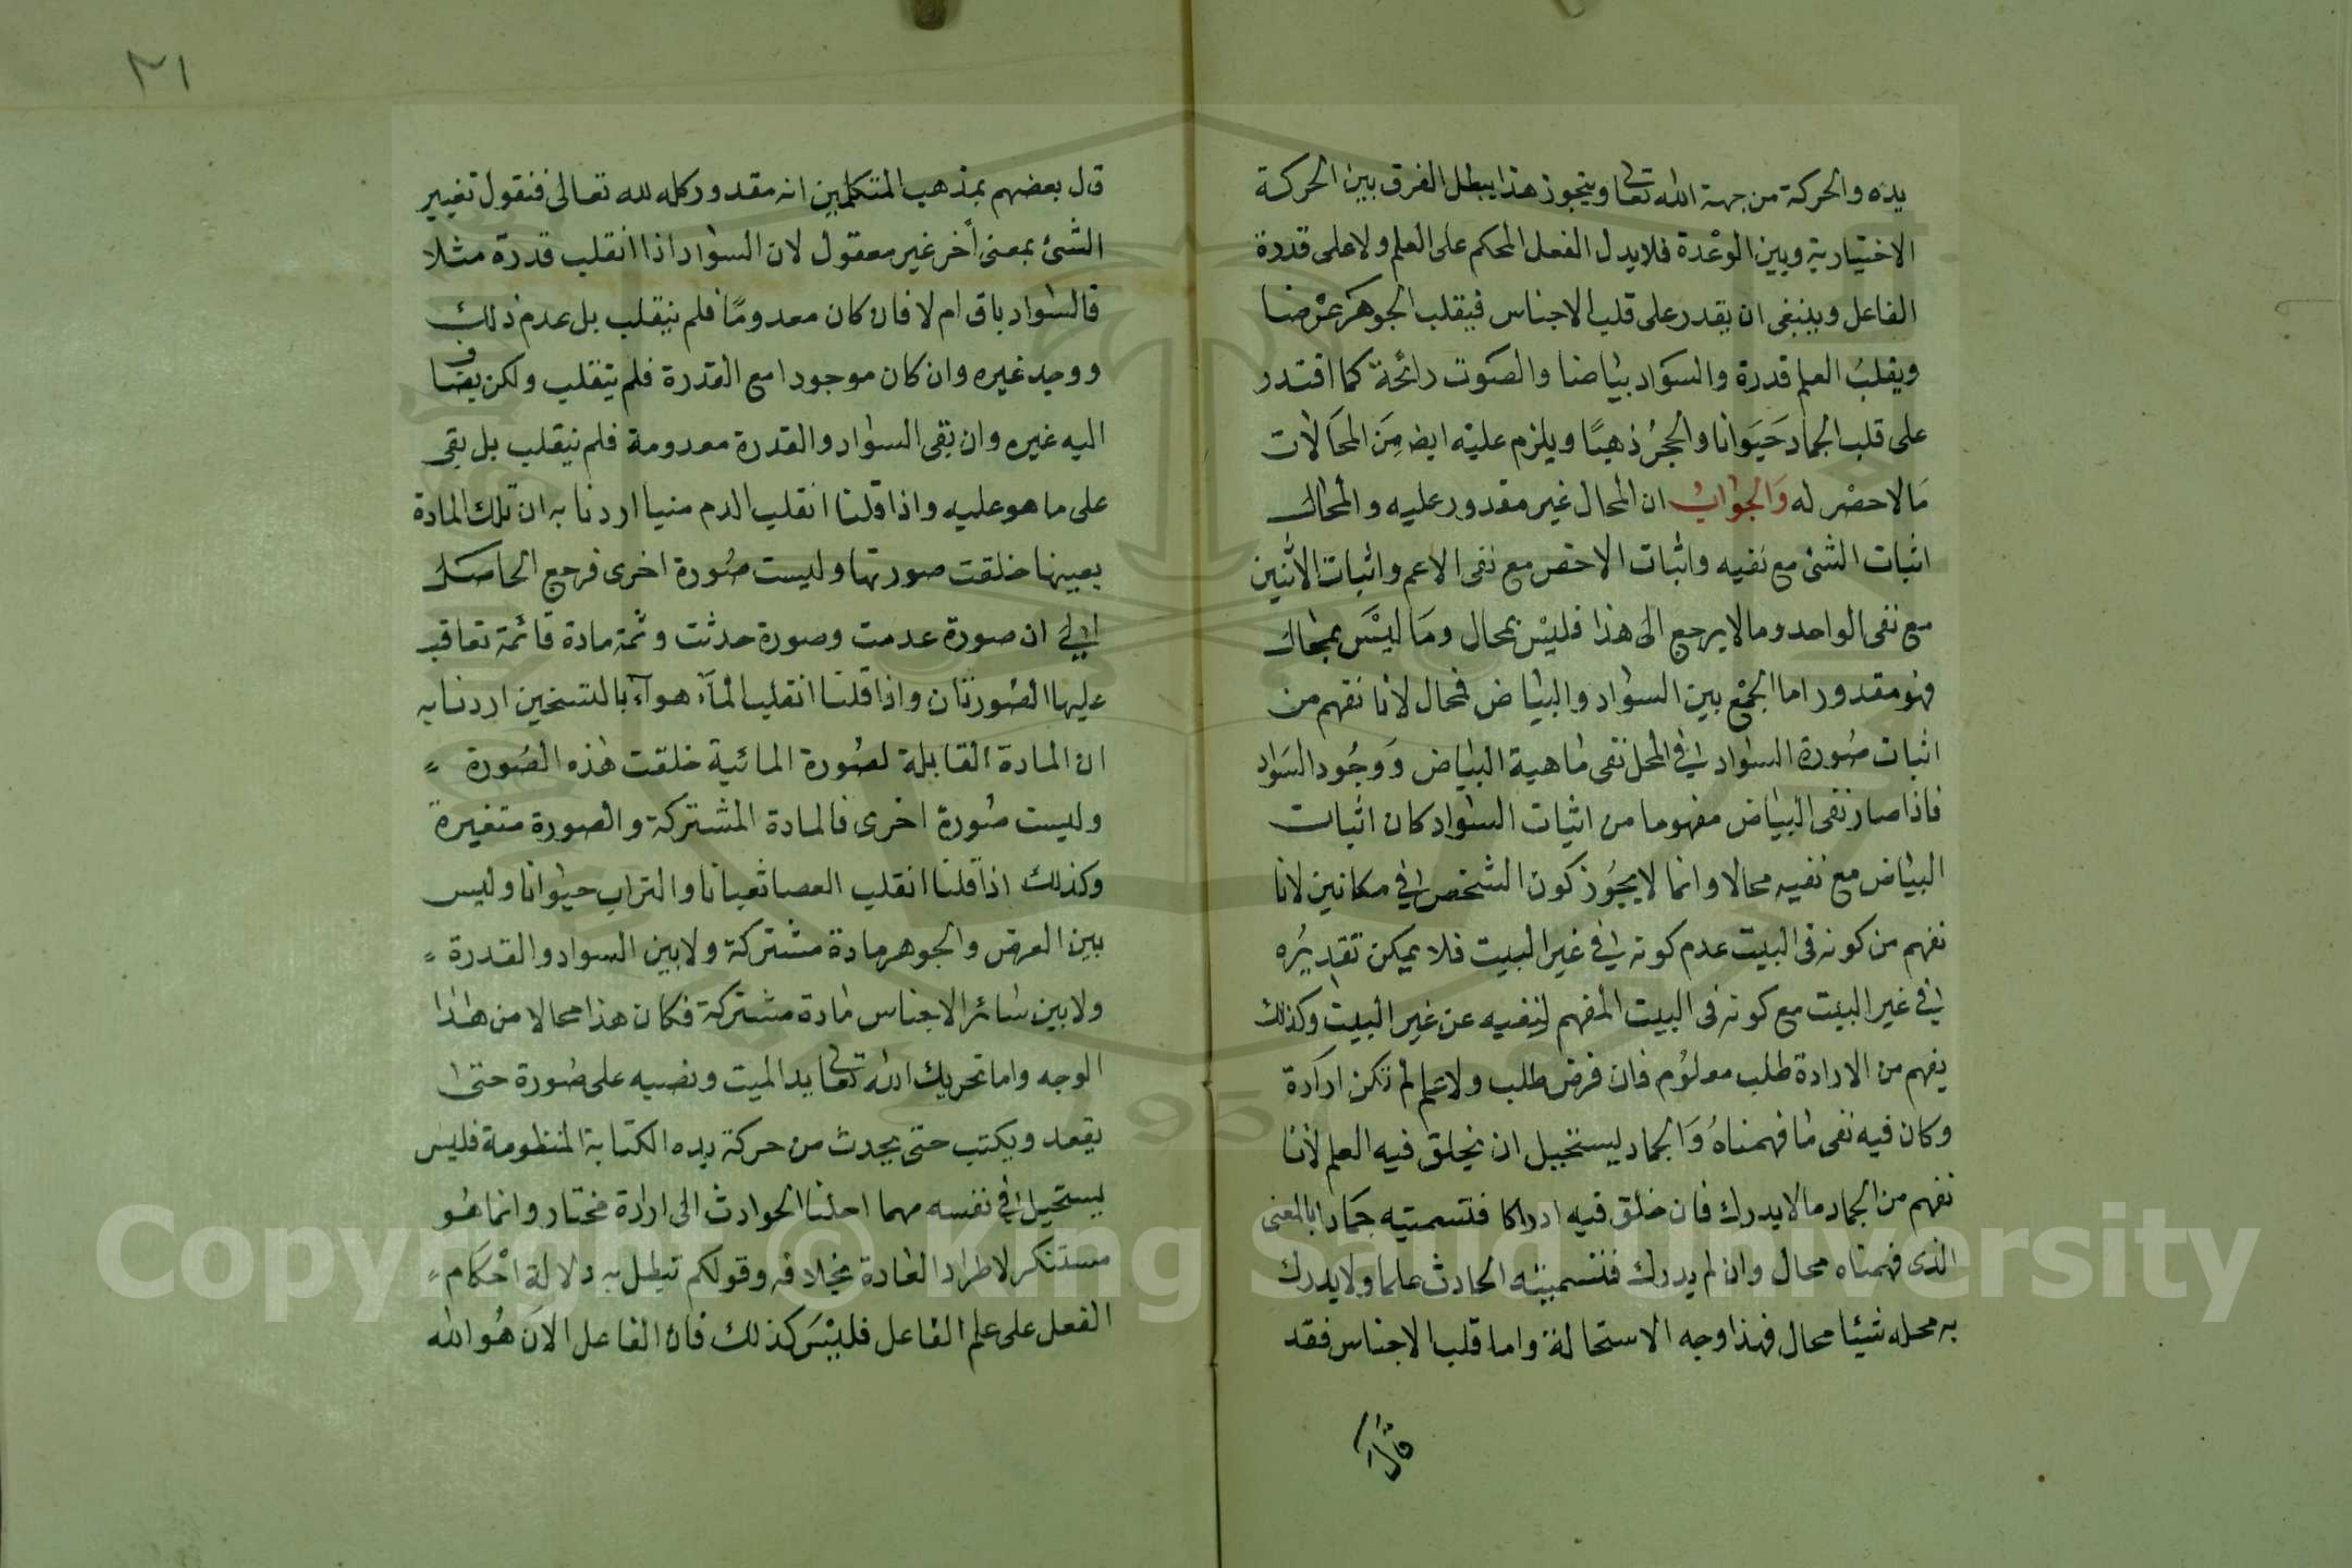 يده والحركة من جهة الله تعا وبتجوز هذا يبطل الفرق بين الحركة
الاختيارية وبين الرعدة فلا يدل الفعل المحكم على العلم ولا على قدرة
الفاعل وينبغى ان يقدر على قلب الاجناس فيقلب الجوهر عرضا
ويقلب العلم قدرة والسواد بياضا والصوت رائحة كما اقتدر
على قلب الجماد حيوانا والحجر ذهبا ويلزم عليه ايض من المحالات
ما لا حصر له والجواب ان المحال غير مقدور عليه والمحال
اثبات الشئ مع نفيه واثبات الاخص مع نفى الاعم واثبات الاثنين
مع نفى الواحد وما لا يرجع الى هذا فليس بمحال وما ليس بمحال
فهو مقدور اما الجمع بين السواد والبياض فمحال لانا نفهم من
اثبات صورة السواد في المحل نفى ماهية البياض ووجود السواد
فاذا صار نفى البياض مفهوما من اثبات السواد كان اثبات
البياض مع نفيه محالا وانما لا يجوز كون الشخص في مكانين لانا
نفهم من كونه فى البيت عدم كونه في غير البيت فلا يمكن تقديره
في غير البيت مع كونه فى البيت المفهم لنفيه عن غير البيت وكذلك
يفهم من الارادة طلب معلوم فان فرض طلب ولا علم لم تكن ارادة
وكان فيه نفى ما فهمناه والجماد يستحيل ان يخلق فيه العلم لانا
نفهم من الجماد ما لا يدرك فان خلق فيه ادراكا فتسميته جمادا بالمعنى
الذى فهمناه محال وان لم يدرك فتسميته الحادث علما ولا يدرك
به محله شيئا محال فهذا وجه الاستحالة واما قلب الاجناس فقد
قال
٣١
قال بعضهم بمذهب المتكلمين انه مقدور كله لله تعالى فنقول تغيير
الشئ بمعنى أخر غير معقول لان السواد اذا انقلب قدرة مثلا
فالسواد باق ام لا فان كان معدوما فلم ينقلب بل عدم ذلك
ووجد غيره وان كان موجودا مع القدرة فلم ينقلب ولكن يضاف
اليه غيره وان بقى السواد والقدرة معدومة فلم ينقلب بل بقى
على ما هو عليه واذا قلنا انقلب الدم منيا اردنا به ان تلك المادة
بعينها خلقت صورتها ولبست صورة اخرى فرجع الحاصل
الى ان صورة عدمت وصورة حدثت وثمة مادة قائمة تعاقب
عليها الصورتان واذا قلنا انقلب المآء هوآء بالتسخين اردنا به
ان المادة القابلة لصورة المائية خلقت هذه الصورة
ولبست صورة اخرى فالمادة المشتركة والصورة متغيرة
وكذلك اذا قلنا انقلب العصا ثعبانا والتراب حيوانا وليس
بين العرض والجوهر مادة مشتركة ولا بين السواد والقدرة
ولا بين سائر الاجناس مادة مشتركة فكان هذا محالا من هذا
الوجه واما تحريك الله تعا يد الميت ونصبه على صورة حتى
يقعد ويكتب حتى يحدث من حركة يده الكتابة المنظومة فليس
يستحيل في نفسه مهما احلنا الحوادث الى ارادة مختار وانما هو
مستنكر لاطراد العادة بخلافه وقولكم تبطل به دلالة احكام
الفعل على علم الفاعل فليس كذلك فان الفاعل الان هو الله
Copyright © King Saud University